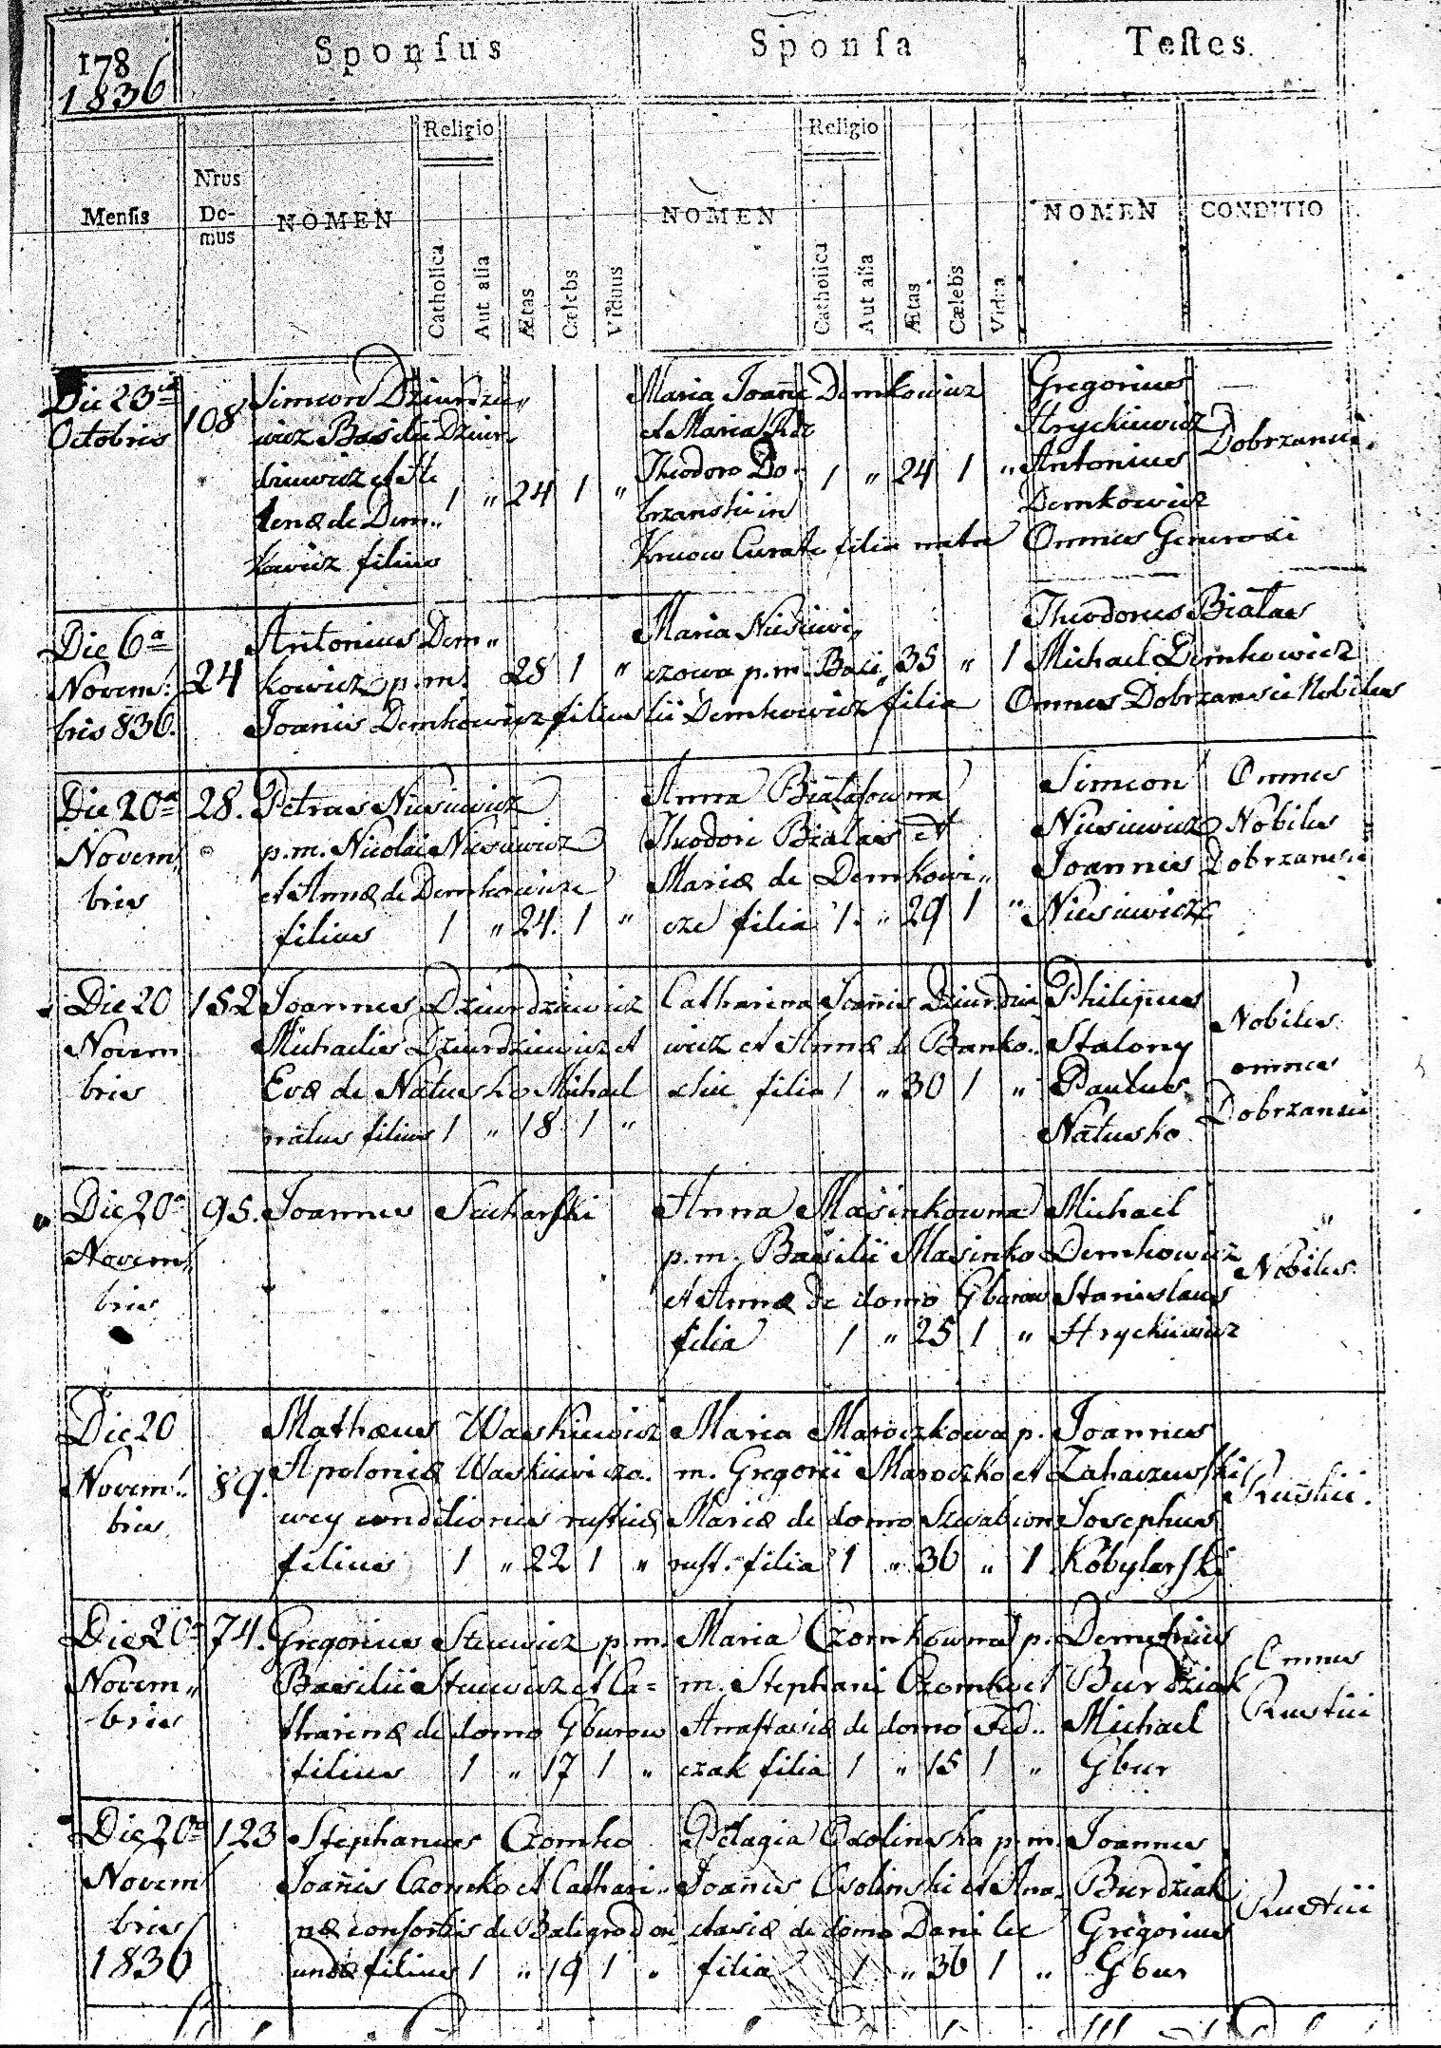 178
1836
Sponsus
Sponsa
Testes.
Mensis
Nrus Domus
NOMEN
Religio
Catholica
Aut alia
Ætas
Cælebs
Viduus
NOMEN
Religio
Catholica
Aut alia
Ætas
Cælebs
Vidua
NOMEN
CONDITIO
Die 23
Octobris
108
Simeon Dziurdzie„
wicz Basilii Dziur„
dziewicz et He
lenæ de Dem„
kowicz filius
1 „ 24 1 „
Maria Joañis Demkowicz
et Maria
Theodoro Do„
brzanski in
Curato filia nata
1 „ 24 1 „
Gregorius
Hryckiewicz
Antonius
Demkowicz
Omnes Generosi
Dobrzansii
Die 6a
Novem:
bris 836.
24
Antonius Dem„
kowicz p.m. 28 1 „
Joanis Demkowicz filius
Maria Niesiewi„
czowa p.m. Basi„ 35 „ 1
lii Demkowicz filia
Theodorus Białas
Michael Demkowicz
Omnes Dobrzansii Nobiles
Die 20a
Novem„
bris
28.
Petrus Niesiewicz
p.m. Nicolai Niesiewicz
et Annæ de Demkowicze
filius 1 „ 24. 1 „
Anna Białasowna
Theodori Białas et
Mariæ de Demkowi„
cze filia 1. „ 29 1 „
Simeon
Niesiewicz
Joannes
Niesiewicz
Omnes
Nobiles
Dobrzansii
Die 20
Novem
bris
152
Joannes Dziurdziewicz
Michaelis Dziurdziewicz et
Evæ de Natusko Michael
natus filius 1 „ 18 1 „
Catharina Joañis Dziurdzie„
wicz et Annæ de Banko„
filia 1 „ 30 1 „
Philipus
Stalony
Paulus
Natusko
Nobiles
omnes
Dobrzansii
Die 20a
Novem„
bris
95.
Joannes Sucharski
Anna Masinkowna
p.m. Basilii Masinko
et Annæ de domo Gburow
filia 1 „ 25 1 „
Michael
Demkowicz
Stanislaus
Hryckiewicz
Nobiles
Die 20
Novem„
bris
89.
Mathæus Waskiewicz
Apoloniæ Waskiewiczo„
wey conditionis rusticæ
filius 1 „ 22 1 „
Maria Maroczkowa p.
m. Gregorii Maroczko et
Mariæ de domo
rust. filia 1 „ 36 „ 1
Joannes
Zahaczewski
Josephus
Kobylarski
Rustici.
Die 20a
Novem„
bris
74.
Gregorius Steciewicz p.m.
Basilii Steciewicz et Ca=
tharinæ de domo Gburow
filius 1 „ 17 1 „
Maria Czomkowna p.
m. Stephani Czomko et
Anastasiæ de domo Fed„
czak filia 1 „ 15 1 „
Demetrius
Burdziak
Michael
Gbur
Omnes
Rustici
Die 20a
Novem
bris
1836
123
Stephanus Czomko
Joañis Czomko et Cathari„
næ consortis de Baligrod ori
undæ filius 1 „ 19 1 „
Pelagia Osolinska p.m.
Joañis Osolinski et Ana„
stasiæ de domo Danilec
filia 1 „ 36 1 „
Joannes
Burdziak
Gregorius
Gbur
Rustici